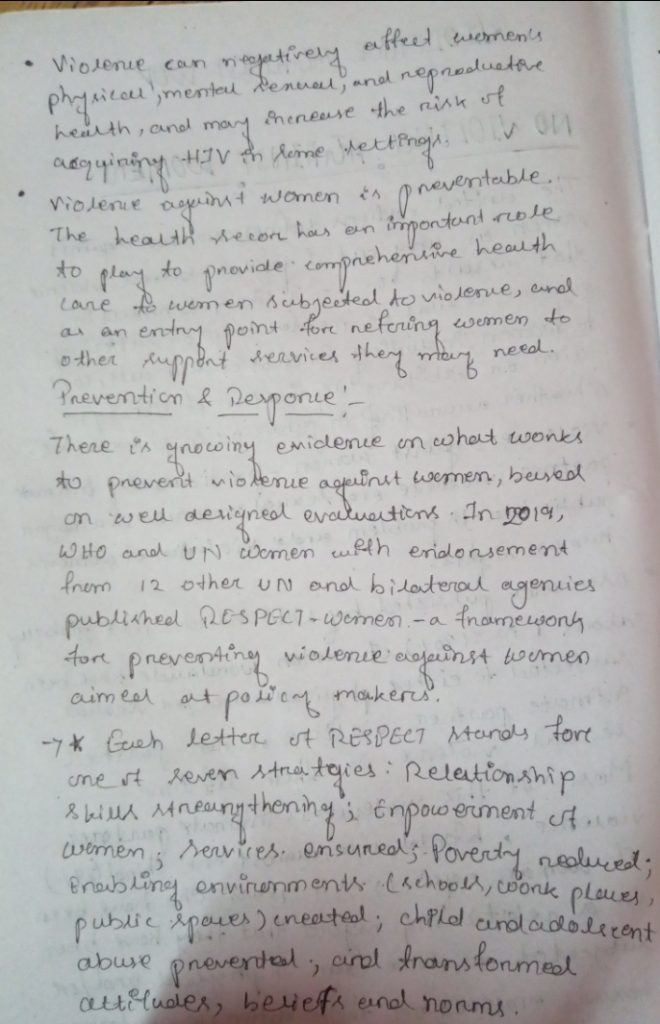 • Violence can negatively affect women's
physical, mental sexual, and reproductive
health, and may increase the risk of
acquiring HIV in some settings.
• Violence against women is preventable.
The health secor has an important role
to play to provide comprehensive health
care to women subjected to violence, and
as an entry point fore refering women to
other support services they may need.
Prevention & Responce :-
There is growing evidence on what works
to prevent violence against women, based
on well designed evaluations. In 2019,
WHO and UN women with endorsement
from 12 other UN and bilateral agencies
published RESPECT-women - a framework
fore preventing violence against women
aimed at policy makers.
→ * Each letter of RESPECT stands fore
one of seven strategies: Relationship
skills streangthening; Enpowerment of
women; services ensured; Poverty reduced;
Enabling environments (schools, work places,
public spaces) created; child and adolescent
abuse prevented; and transformed
attitudes, beliefs and norms.